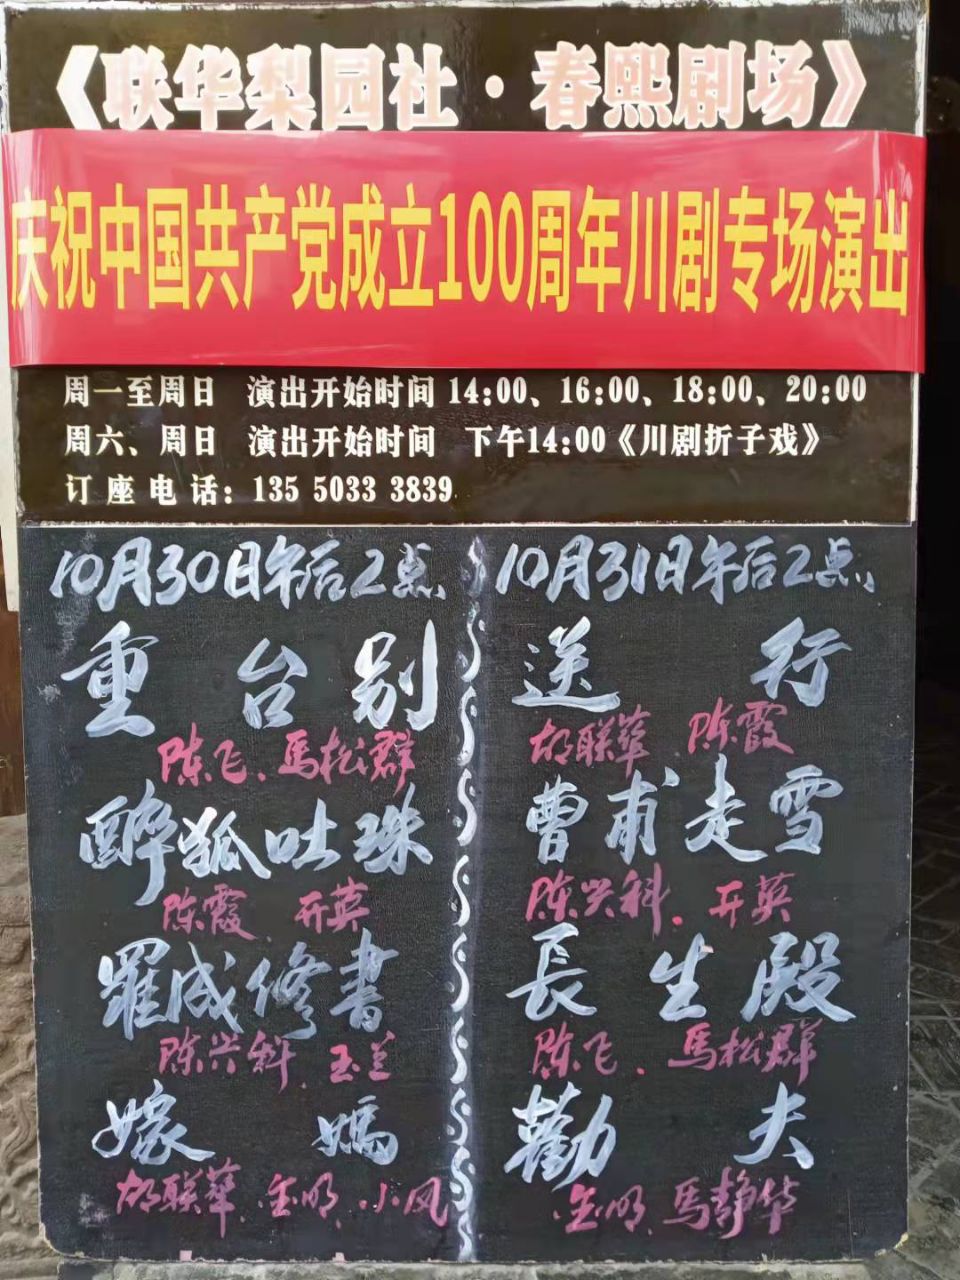 《联华梨园社·春熙剧场》
庆祝中国共产党成立100周年川剧专场演出
周一至周日 演出开始时间 14:00、16:00、18:00、20:00
周六、周日 演出开始时间 下午14:00《川剧折子戏》
订座电话：135 5033 3839
10月30日午后2点
重台别
陈飞、馬松群
醉狐吐珠
陈霞 开英
羅成修書
陈兴科、玉兰
嫁媽
胡联華、金明、小凤
10月31日午后2点
送行
胡联華、陈霞
曹甫走雪
陈兴科、开英
長生殿
陈飞、馬松群
勸夫
金明、馬静华